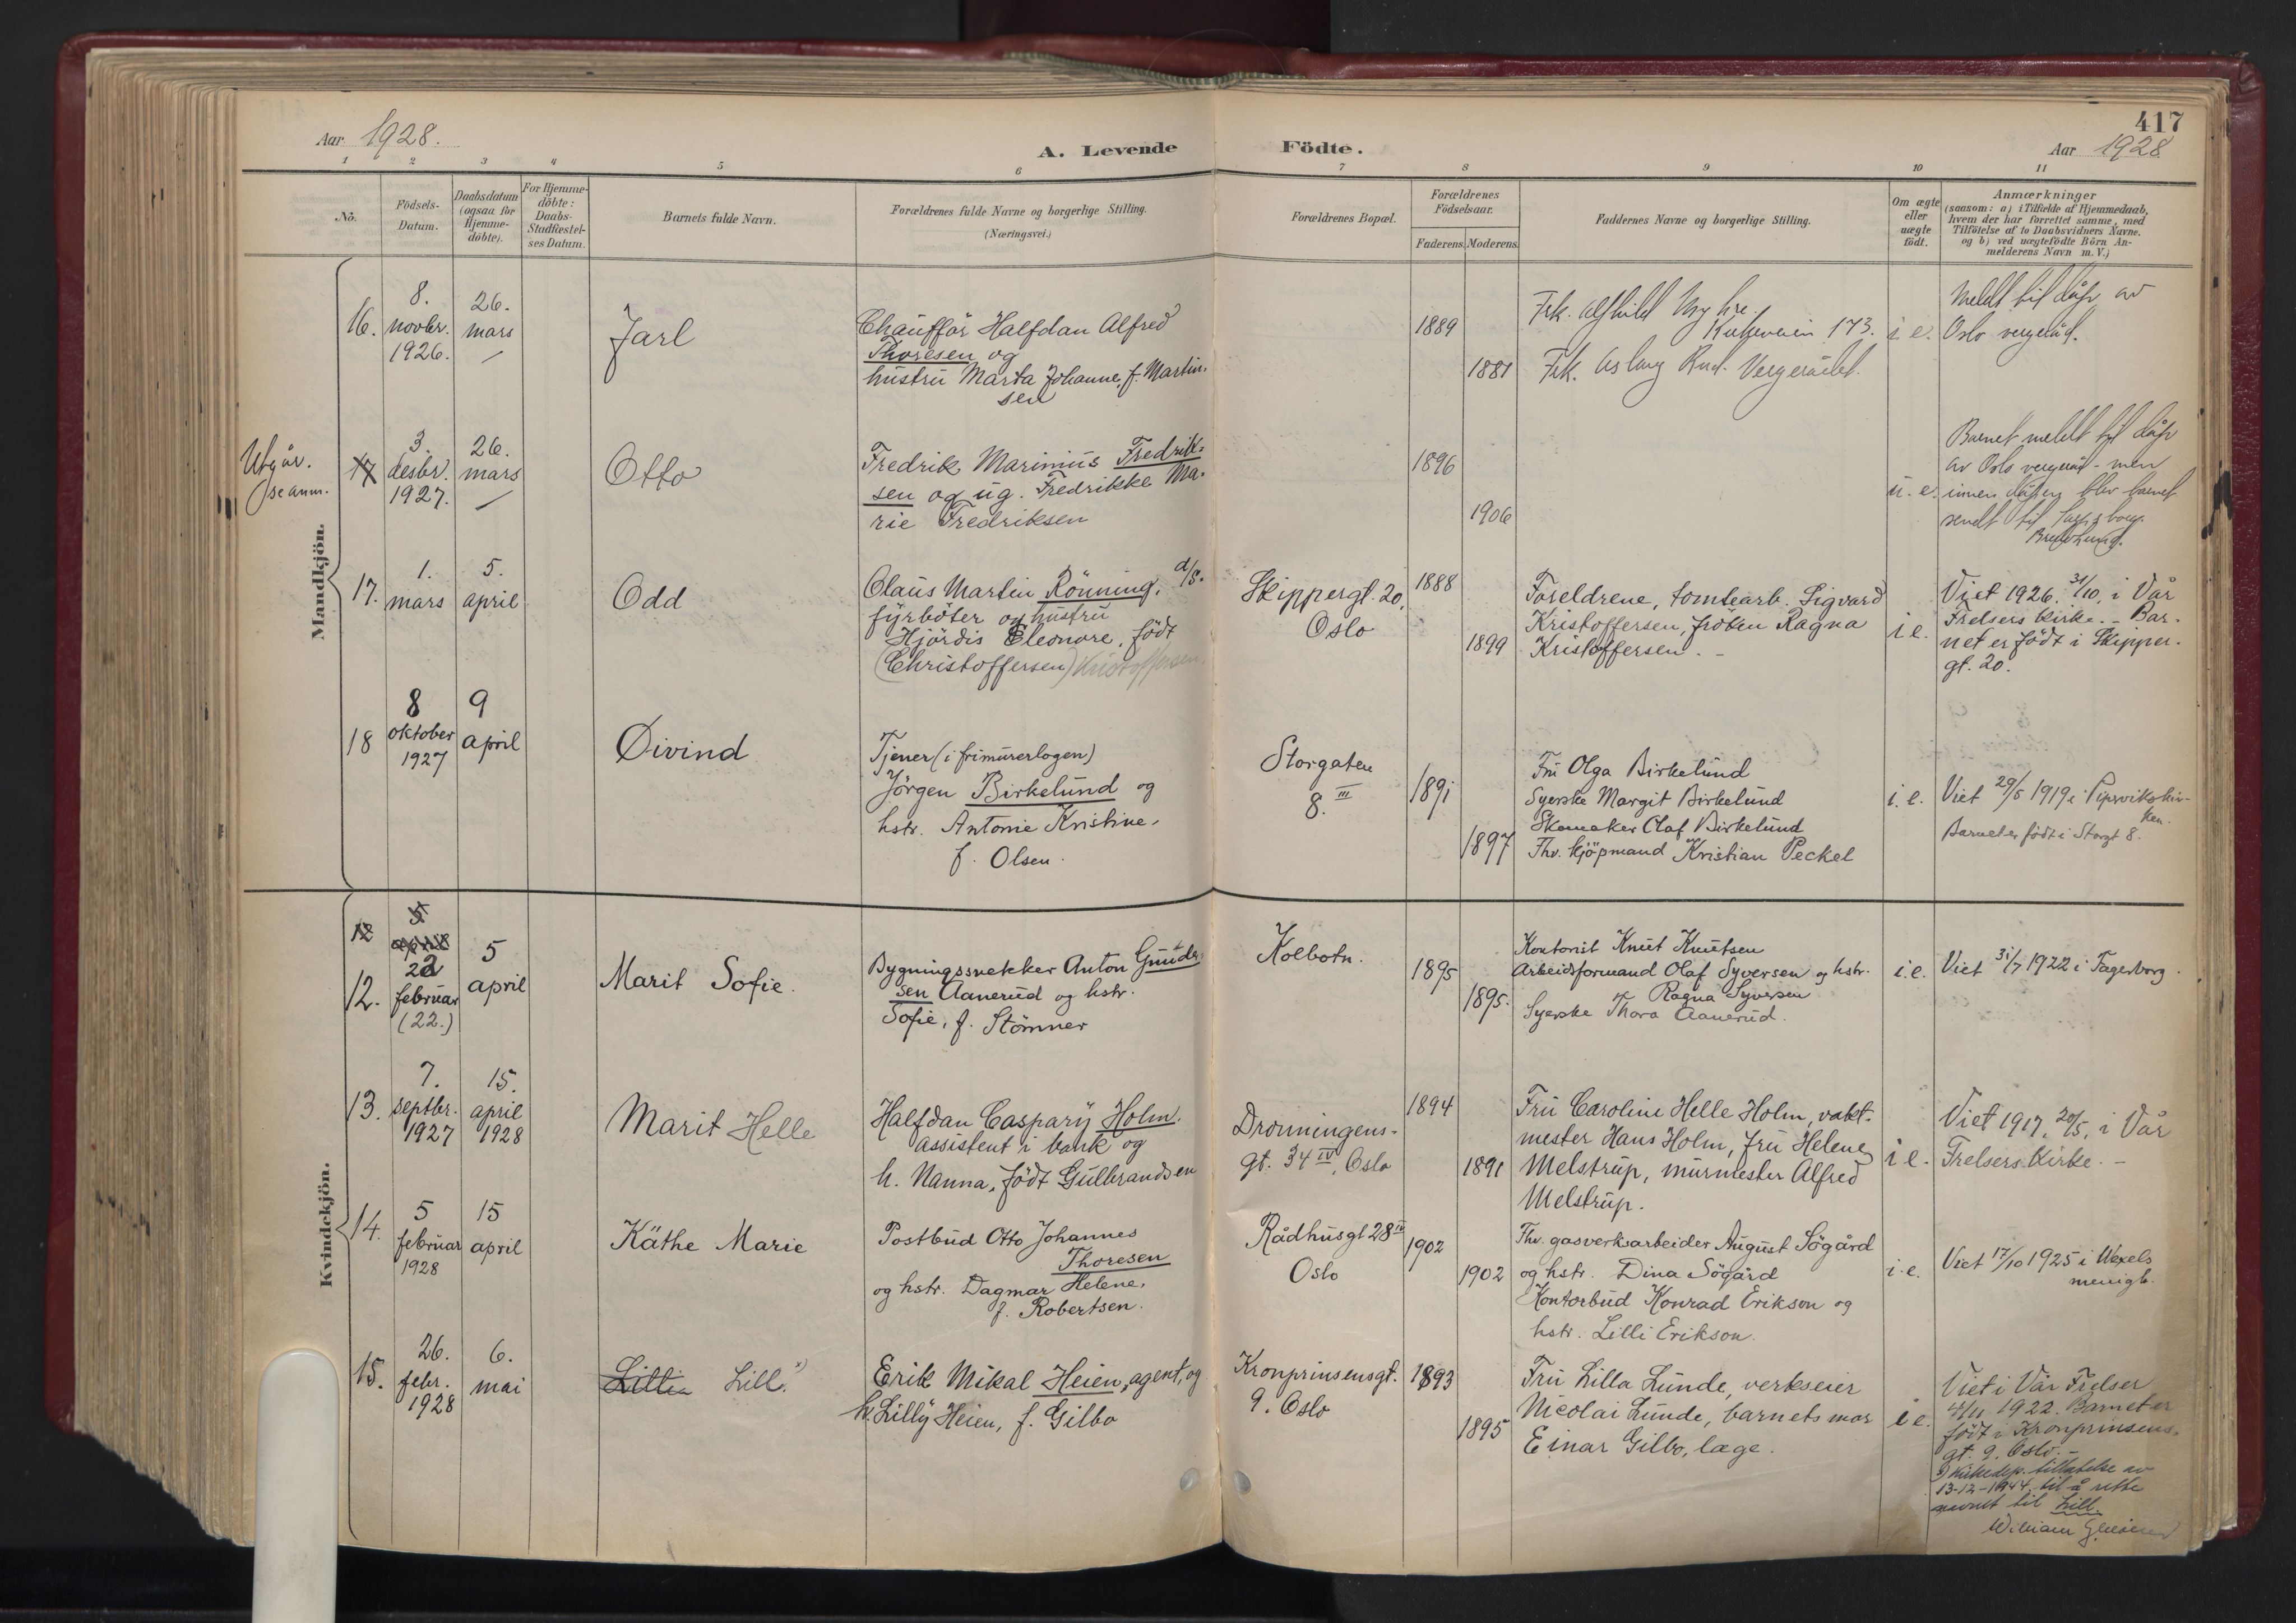 417
Aar 1928.
A. Levende Födte.
Aar 1928
1 2 3 4 5 6 7 8 9 10 11
No.
Födsels-
Datum.
Daabsdatum
(ogsaa for
Hjemme-
döbte).
For Hjemme-
döbte:
Daabs-
Stadfæstel-
ses Datum.
Barnets fulde Navn.
Forældrenes fulde Navne og borgerlige Stilling.
(Næringsvei.)
Forældrenes Bopæl.
Forældrenes
Födselsaar.
Faderens.
Moderens.
Faddernes Navne og borgerlige Stilling.
Om ægte
eller
uægte
födt.
Anmærkninger
(saasom: a) i Tilfælde af Hjemmedaab,
hvem der har forrettet samme, med
Tilföielse af to Daabsvidners Navne.
og b) ved uægtefödte Börn An-
melderens Navn m. V.)
Mandkjön.
16.
8.
novbr.
1926.
26.
mars
Jarl
Chaufför Halfdan Alfred
Thoresen og
hustru Marta Johanne, f. Martin-
sen
1889
1881
Frk. Alfhild
173.
Frk. Aslaug Rud. Vergerådet.
i e.
Meldt til dåp av
Oslo vergeråd.
Utgår.
Se anm.
17
3.
desbr.
1927.
26.
mars
Otto
Fredrik Marinius Fredrik-
sen og ug. Fredrikke Ma-
rie Fredriksen
1896
1906
u. e.
Barnet meldt til dåp
av Oslo vergeråd - men
innen dåpen blev barnet
sendt til Sarpsborg.
17.
1.
mars
5.
april
Odd
Olaus Martin Rönning, d/s.
fyrböter og hustru
Hjördis Eleonore, födt
(Christoffersen) Kristoffersen.
Skippergt. 20,
Oslo
1888
1899
Foreldrene, tomtearb. Sigvard
Kristoffersen, fröken Ragna
Kristoffersen. -
i e.
Viet 1926. 31/10, i Vår
Frelsers kirke. - Bar-
net er födt i Skipper-
gt. 20.
18
8
oktober
1927
9
april
Øivind
Tjener (i frimurerlogen)
Jörgen Birkelund og
hstr. Antonie Kristine,
f. Olsen.
Storgaten
8. III
1891
1897
Fru Olga Birkelund
Syerske Margit Birkelund
Skomaker Olaf Birkelund
Thv. kjöpmand Kristian Peckel
i. e.
Viet 29/5 1919 i Pipervikskir-
ken.
Barnet er födt i Storgt 8.
Kvindekjön.
12
5
april
12.
22
februar
(22.)
5
april
Marit Sofie.
Bygningssnekker Anton Gunder-
sen Aanerud og hstr.
Sofie, f. Stömner
Kolbotn.
1895
1895.
Kontorist Knut Knutsen
Arbeidsformand Olaf Syversen og hstr.
Ragna Syversen
Syerske Thora Aanerud.
i. e.
Viet 31/7 1922 i Fagerborg.
13.
7.
septbr.
1927
15.
april
1928
Marit Helle
Halfdan Caspary Holm.
assistent i bank og
h. Nanna, födt Gulbrandsen
Dronningens-
gt. 34 IV, Oslo
1894
1891
Fru Caroline Helle Holm, vakt-
mester Hans Holm, fru Helene
Melstrup, murmester Alfred
Melstrup.
i e.
Viet 1917, 20/5, i Vår
Frelsers Kirke. -
14.
5
februar
1928
15
april
Käthe Marie
Postbud Otto Johannes
Thoresen
og hstr. Dagmar Helene,
f. Robertsen.
Rådhusgt 28 IV
Oslo
1902
1902
Thv. gasverksarbeider August Sögård
og hstr. Dina Sögård
Kontorbud Konrad Erikson og
hstr. Lilli Erikson.
i. e.
Viet 17/10 1925 i Wexels
menigh.
15.
26.
febr.
1928
6.
mai
Lillia Lill.
Erik Mikal Heien, agent, og
h. Lilly Heien, f. Gilbo
Kronprinsensgt.
9. Oslo
1893
1895
Fru Lilla Lunde, verkseier
Nicolai Lunde, barnets mor
Einar Gilbo, læge.
i e.
Viet i Vår Frelser
4/11 1922. Barnet er
födt i Kronprinsens-
gt. 9. Oslo. -
Kirkedep. tillatelse av
13-12-1944 til å rette
navnet til Lill.
William